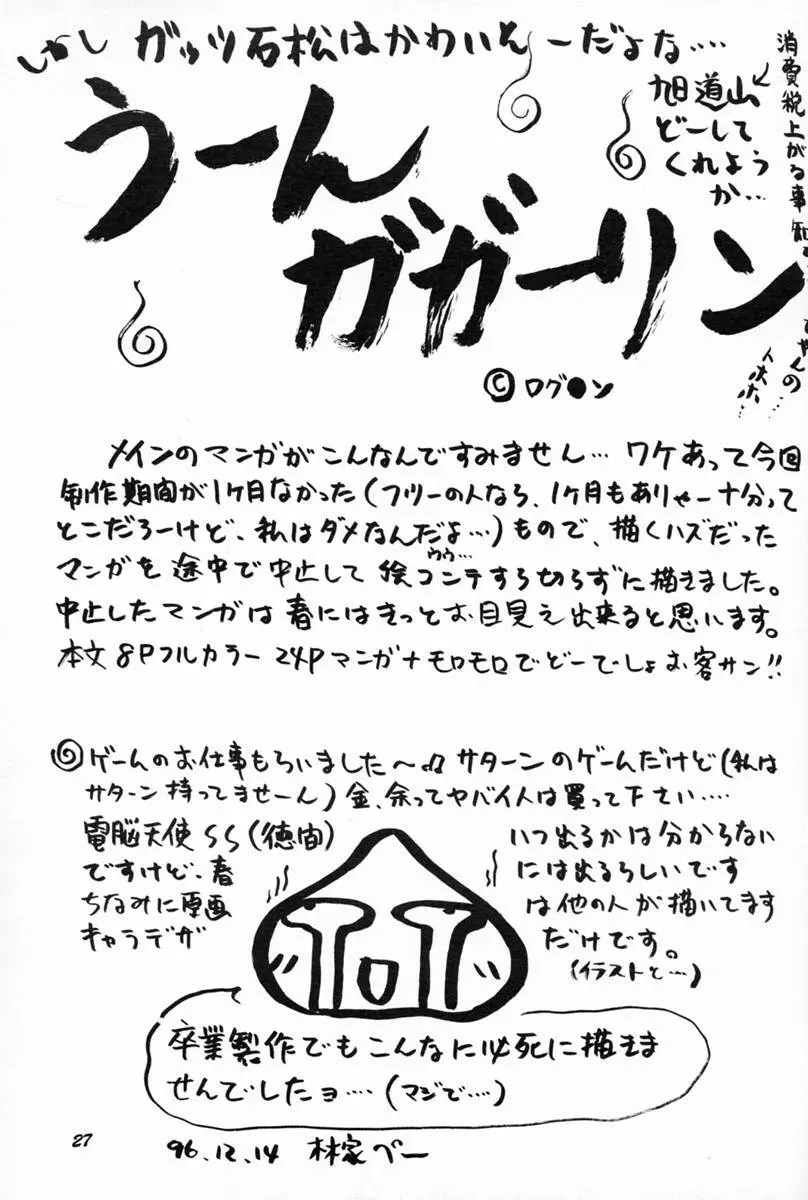 しかし ガッツ石松はかわいそーだよな‥‥
旭道山
どーして
くれよう
か…
消費税上がる事
うーん
ガガーリン
© ログ●ン
メインのマンガがこんなんですみません… ワケあって今回
制作期間が1ケ月なかった(フツーの人なら、1ケ月もありゃー十分って
とこだろーけど、私はダメなんだよ…)もので、描くハズだった
マンガを途中で中止して絵コンテすら切らずに描きました。
ウウ…
中止したマンガは春にはきっとお目見え出来ると思います。
本文8Pフルカラー24Pマンガ+モロモロでどーでしょお客サン!!
ゲームのお仕事もらいました〜♫ サターンのゲームだけど(私は
サターン持ってませーん)金、余ってヤバイ人は買って下さい‥‥
電脳天使SS(徳間) いつ出るかは分からない
ですけど、春 には出るらしいです
ちなみに原画 は他の人が描いてます
キャラデザ だけです。
(イラストと…)
卒業製作でもこんなに必死に描きま
せんでしたョ…(マジで…)
27
96.12.14 林家ペー